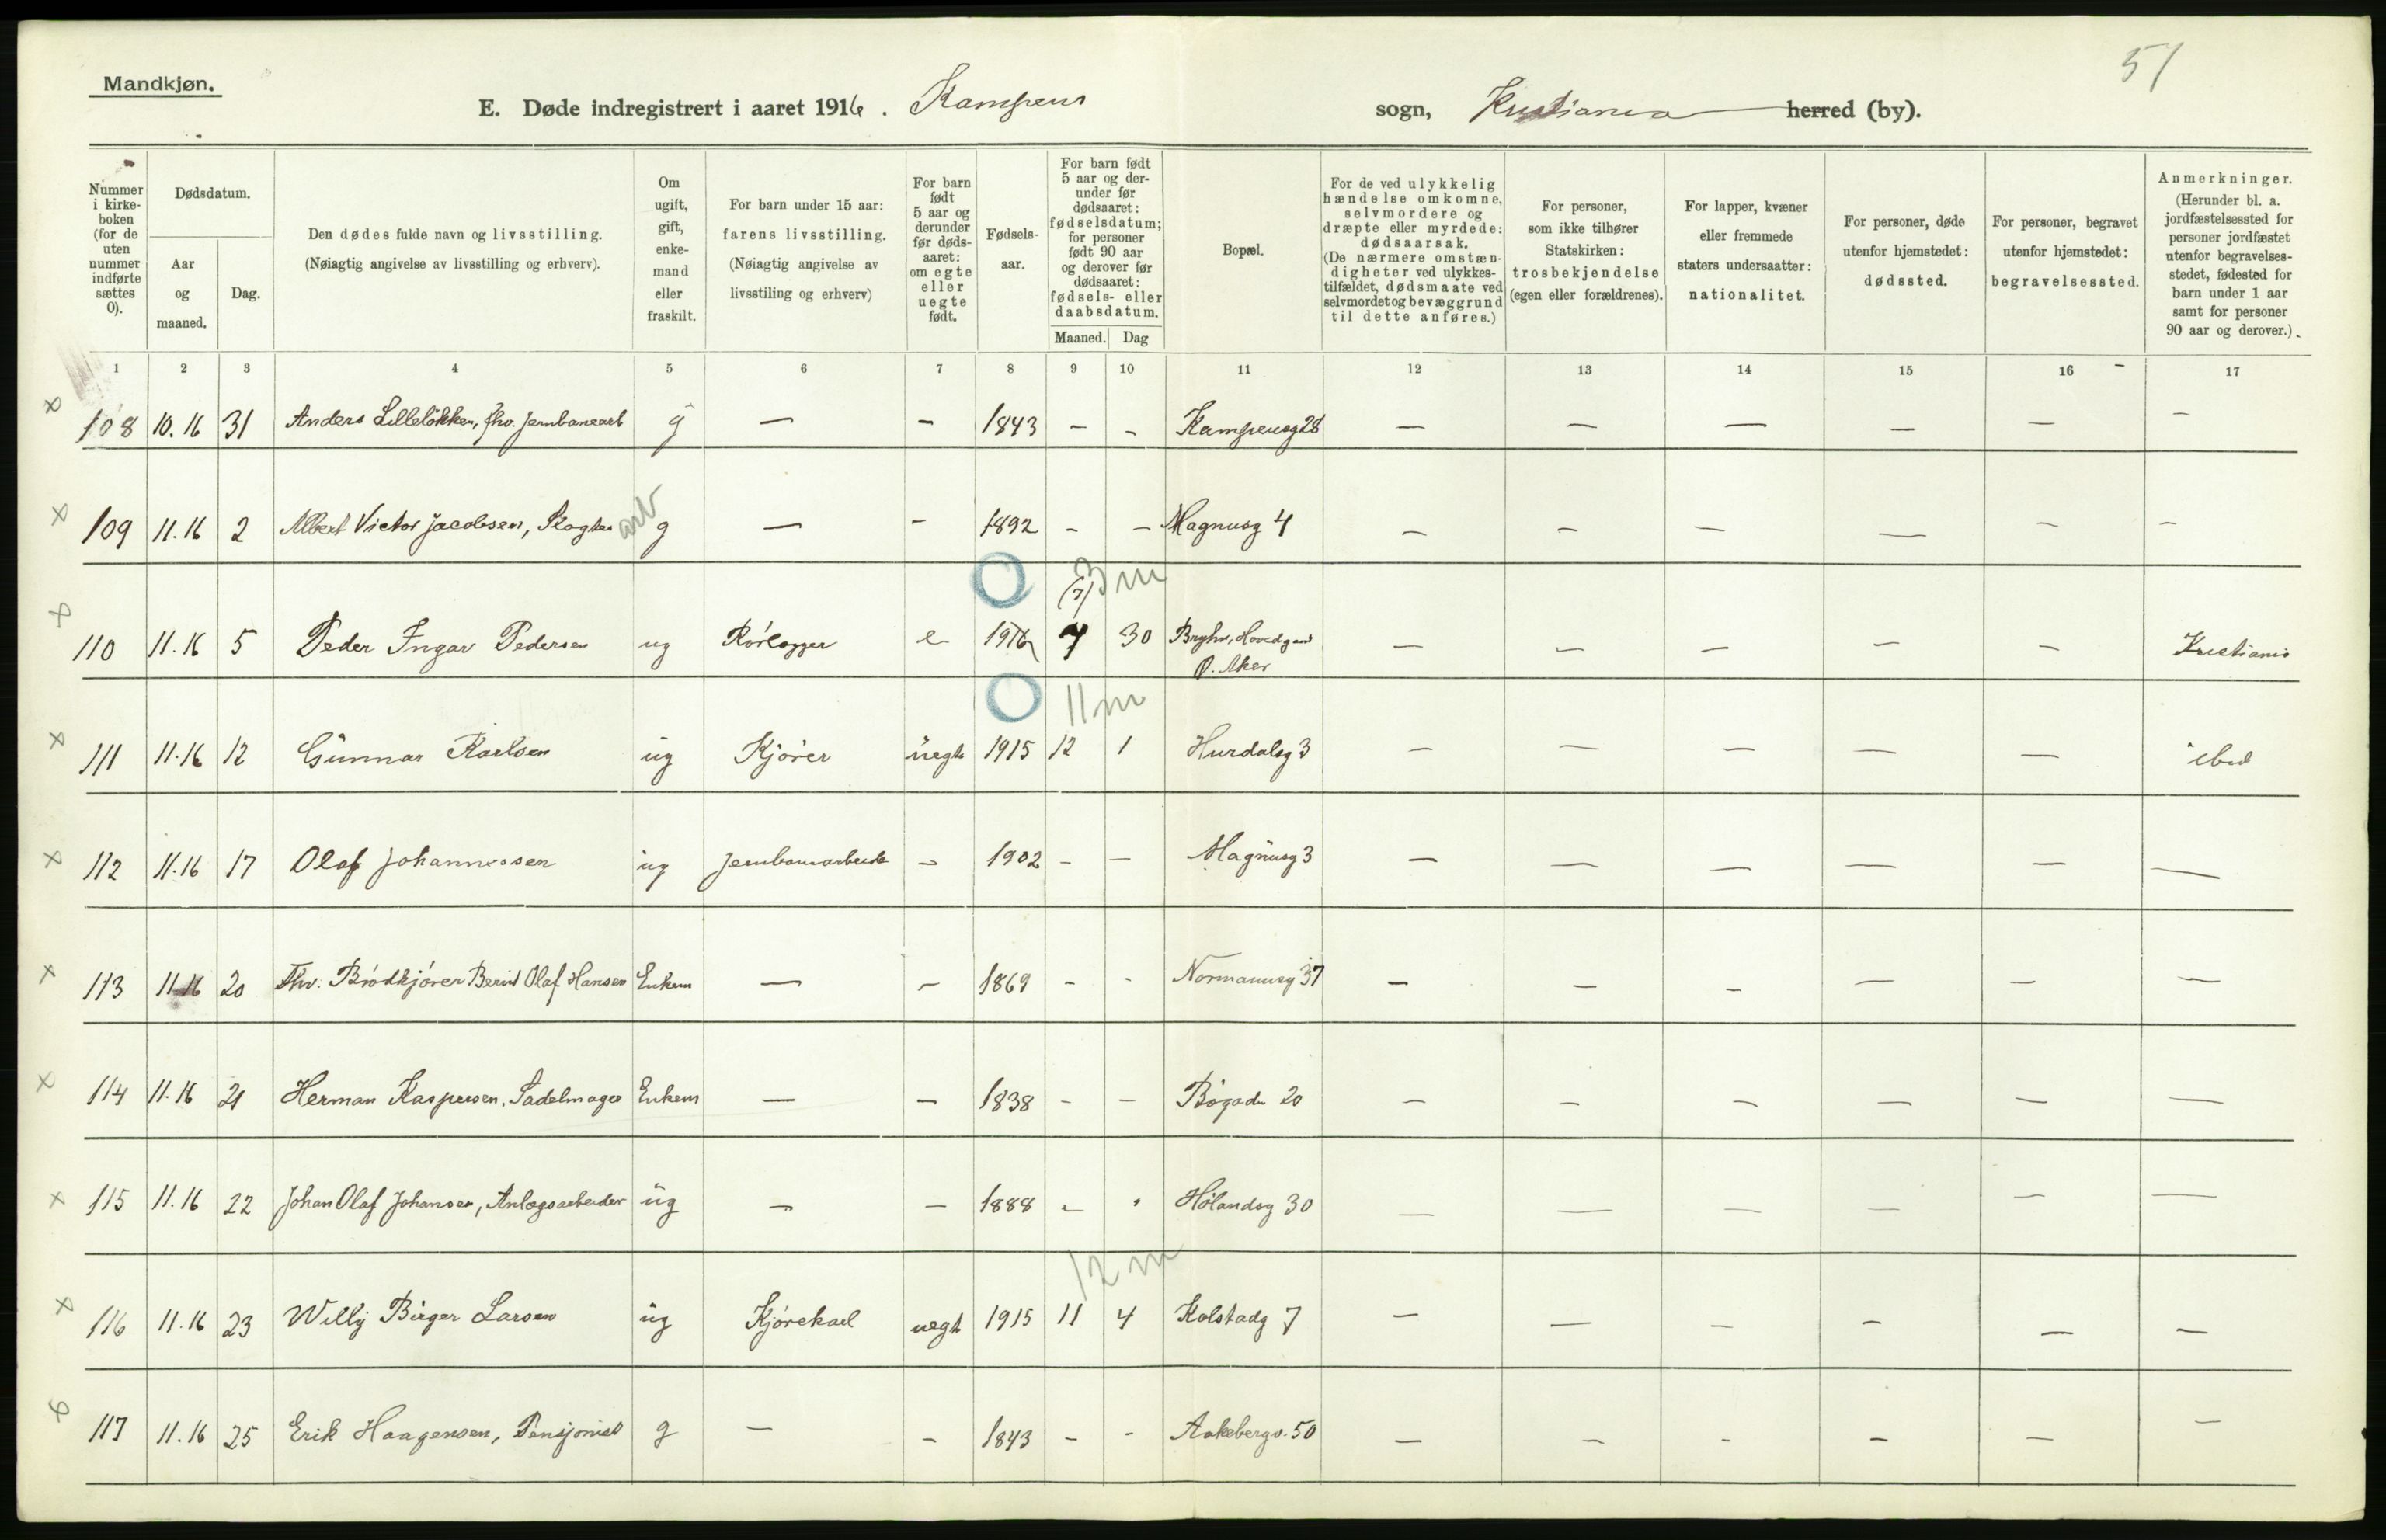 51
Mandkjøn.
E. Døde indregistrert i aaret 1916. Kampens sogn, Kristiania herred (by).
Nummer i kirkeboken (for de uten nummer indførte sættes 0).
Dødsdatum.
Aar og maaned.
Dag.
Den dødes fulde navn og livsstilling. (Nøiagtig angivelse av livsstilling og erhverv).
Om ugift, gift, enkemand eller fraskilt.
For barn under 15 aar: farens livsstilling. (Nøiagtig angivelse av livsstiling og erhverv)
For barn født 5 aar og derunder før dødsaaret: om egte eller uegte født.
Fødselsaar.
For barn født 5 aar og derunder før dødsaaret: fødselsdatum; for personer født 90 aar og derover før dødsaaret: fødsels- eller daabsdatum.
Maaned. Dag
Bopæl.
For de ved ulykkelig hændelse omkomne, selvmordere og dræpte eller myrdede: dødsaarsak. (De nærmere omstændigheter ved ulykkestilfældet, dødsmaate ved selvmordet og bevæggrund til dette anføres.)
For personer, som ikke tilhører Statskirken: trosbekjendelse (egen eller forældrenes).
For lapper, kvæner eller fremmede staters undersaatter: nationalitet.
For personer, døde utenfor hjemstedet: dødssted.
For personer, begravet utenfor hjemstedet: begravelsessted.
Anmerkninger. (Herunder bl. a. jordfæstelsessted for personer jordfæstet utenfor begravelsesstedet, fødested for barn under 1 aar samt for personer 90 aar og derover.)
1 2 3 4 5 6 7 8 9 10 11 12 13 14 15 16 17
x 108 10.16 31 Anders Lilleløkken, fhv. jernbanearb g — — 1843 — — Kampensg 28 — — — — — —
x 109 11.16 2 Albert Victor Jacobsen, Slagter arb g — — 1892 — — Magnusg 4 — — — — — —
(7) 3 m
x 110 11.16 5 Peder Ingar Pedersen ug Rørlegger e 1916 7 30 Brynhovedgaard Ø. Aker — — — — — Kristiania
11 m
x 111 11.16 12 Gunnar Karlsen ug Kjører uegte 1915 12 1 Hurdalsg 3 — — — — — ibid
x 112 11.16 17 Olaf Johannessen ug Jernbanearbeider — 1902 — — Magnusg 3 — — — — — —
x 113 11.16 20 Fhv. Brødkjører Bernt Olaf Hansen Enkem — — 1869 — — Normannsg 37 — — — — — —
x 114 11.16 21 Herman Kaspersen, Sadelmager Enkem — — 1838 — — Bøgaden 20 — — — — — —
x 115 11.16 22 Johan Olaf Johansen, Anlægsarbeider ug — — 1888 — — Hølandsg 30 — — — — — —
12 m
x 116 11.16 23 Willy Birger Larsen ug Kjørekarl uegte 1915 11 4 Kolstadg 7 — — — — — —
x 117 11.16 25 Erik Haagensen, Pensjonist g — — 1843 — — Aakebergv. 50 — — — — — —